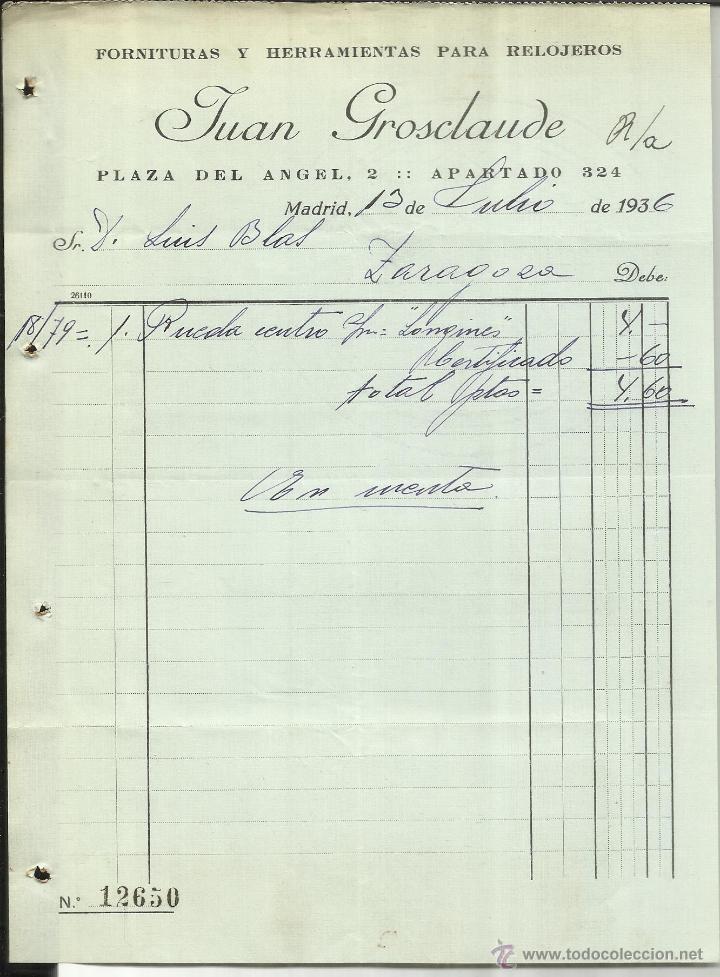 FORNITURAS Y HERRAMIENTAS PARA RELOJEROS
Juan Grosclaude
R/a
PLAZA DEL ANGEL, 2 :: APARTADO 324
Madrid, 13 de Julio de 1936
Sr. D. Luis Blas
Zaragoza Debe:
26110
18/79 = 1. Rueda centro "Longines" 4. -
Certificado - 60
total ptas = 4. 60
En cuenta.
N.º 12650
www.todocoleccion.net